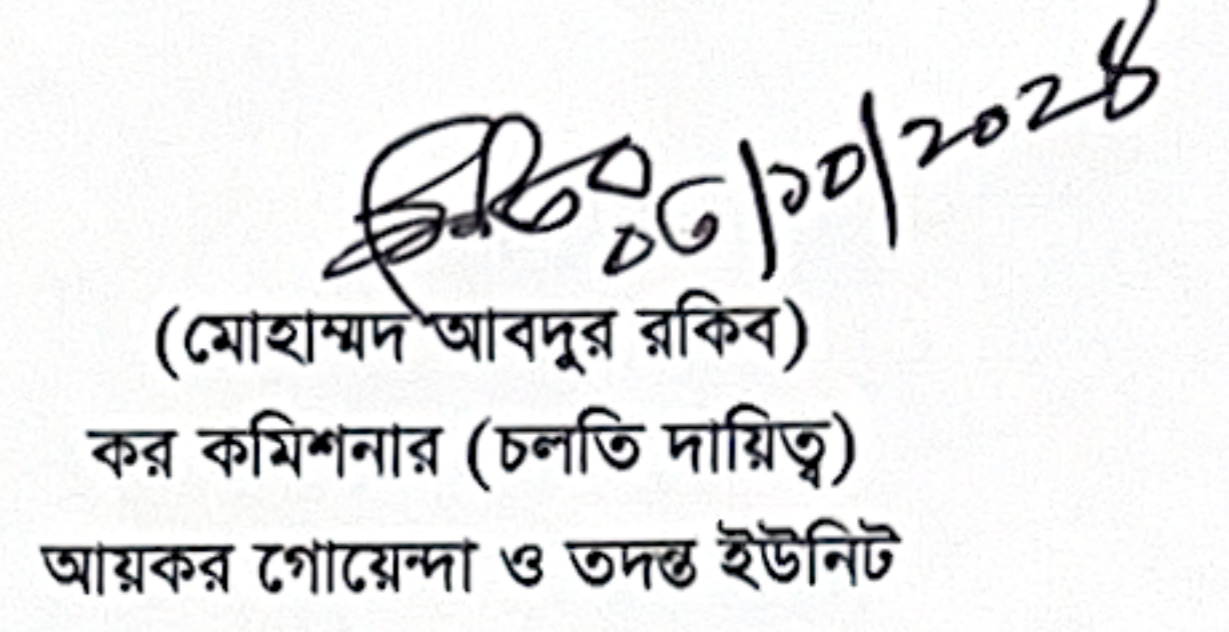 ০৬/১০/২০২৪
(মোহাম্মদ আবদুর রকিব)
কর কমিশনার (চলতি দায়িত্ব)
আয়কর গোয়েন্দা ও তদন্ত ইউনিট